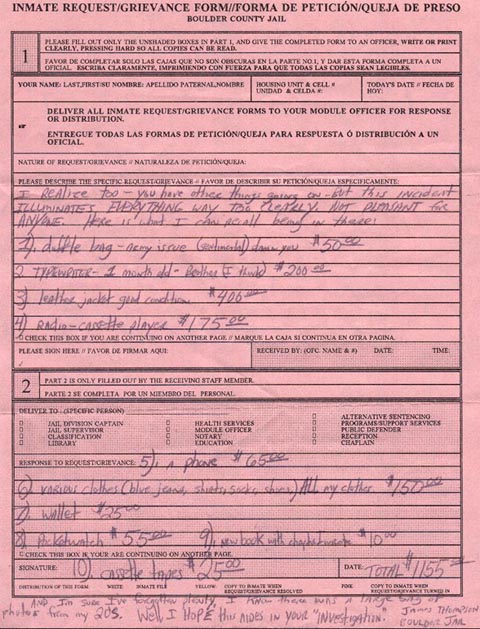 INMATE REQUEST/GRIEVANCE FORM//FORMA DE PETICIÓN/QUEJA DE PRESO
BOULDER COUNTY JAIL
1
PLEASE FILL OUT ONLY THE UNSHADED BOXES IN PART 1, AND GIVE THE COMPLETED FORM TO AN OFFICER, WRITE OR PRINT
CLEARLY, PRESSING HARD SO ALL COPIES CAN BE READ.
FAVOR DE COMPLETAR SOLO LAS CAJAS QUE NO SON OBSCURAS EN LA PARTE NO.1, Y DAR ESTA FORMA COMPLETA A UN
OFICIAL. ESCRIBA CLARAMENTE, IMPRIMIENDO CON FUERZA PARA QUE TODAS LAS COPIAS SEAN LEGIBLES.
YOUR NAME: LAST,FIRST/SU NOMBRE: APELLIDO PATERNAL,NOMBRE
HOUSING UNIT & CELL #
UNIDAD & CELDA #:
TODAY'S DATE // FECHA DE
HOY:
DELIVER ALL INMATE REQUEST/GRIEVANCE FORMS TO YOUR MODULE OFFICER FOR RESPONSE
OR DISTRIBUTION.
or
ENTREGUE TODAS LAS FORMAS DE PETICIÓN/QUEJA PARA RESPUESTA Ó DISTRIBUCIÓN A UN
OFICIAL.
NATURE OF REQUEST/GRIEVANCE // NATURALEZA DE PETICIÓN/QUEJA:
PLEASE DESCRIBE THE SPECIFIC REQUEST/GRIEVANCE // FAVOR DE DESCRIBIR SU PETICIÓN/QUEJA ESPECIFICAMENTE:
I REALIZE too - you have other things going on - but this incident
ILLUMINATES EVERYTHING WAY TOO CLEARLY NOT PLEASANT for
ANYONE. Here is what I can recall being in there:
1) duffle bag - army issue (sentimental) $50.00
2 TYPEWRITER - 1 month old - Brother (I think) $200.00
3) leather jacket good condition $400.00
4) RADIO-CASSETTE PLAYER $175.00
CHECK THIS BOX IF YOU ARE CONTINUING ON ANOTHER PAGE // MARQUE LA CAJA SI CONTINUA EN OTRA PAGINA.
PLEASE SIGN HERE // FAVOR DE FIRMAR AQUI:
RECEIVED BY: (OFC. NAME & #)
DATE:
TIME:
2
PART 2 IS ONLY FILLED OUT BY THE RECEIVING STAFF MEMBER.
PARTE 2 SE COMPLETA POR UN MIEMBRO DEL PERSONAL.
DELIVER TO - (SPECIFIC PERSON)
JAIL DIVISION CAPTAIN
JAIL SUPERVISOR
CLASSIFICATION
LIBRARY
HEALTH SERVICES
MODULE OFFICER
NOTARY
EDUCATION
ALTERNATIVE SENTENCING
PROGRAMS/SUPPORT SERVICES
PUBLIC DEFENDER
RECEPTION
CHAPLAIN
RESPONSE TO REQUEST/GRIEVANCE: 5), a phone $65.00
6) VARIOUS clothes (blue jeans, shirts, socks, shoes) ALL my clothes $150.00
7) wallet $25.00
8) Pocketwatch $55.00 9), new book $10.00
CHECK THIS BOX IF YOU ARE CONTINUING ON ANOTHER PAGE.
SIGNATURE: 10) cassette tapes $25.00
DATE: TOTAL $1155.00
DISTRIBUTION OF THIS FORM
WHITE INMATE FILE
YELLOW COPY TO INMATE WHEN
REQUEST/GRIEVANCE RESOLVED
PINK COPY TO INMATE WHEN
REQUEST/GRIEVANCE TURNED IN
AND I'm sure I've forgotten plenty, I know there was a large bag of
photos from my 20s. Well, I HOPE this AIDES in your "investigation".
JAMES THOMPSON
BOULDER JAIL